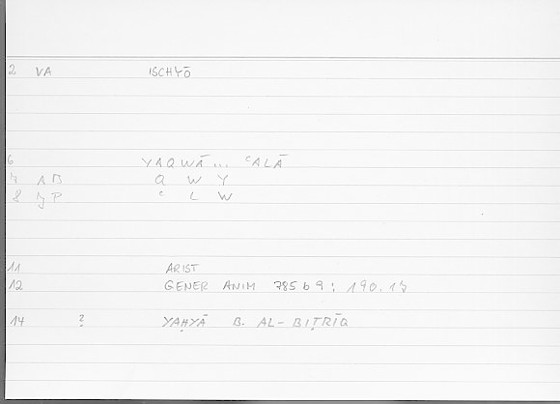 2 VA ISCHYŌ
6 YAQWĀ... ʿALĀ
7 AB Q W Y
8 ʿ L W
11 ARIST
12 GENER ANIM 785 b 9 : 190.17
14 ? YAḤYĀ B. AL-BIṬRĪQ